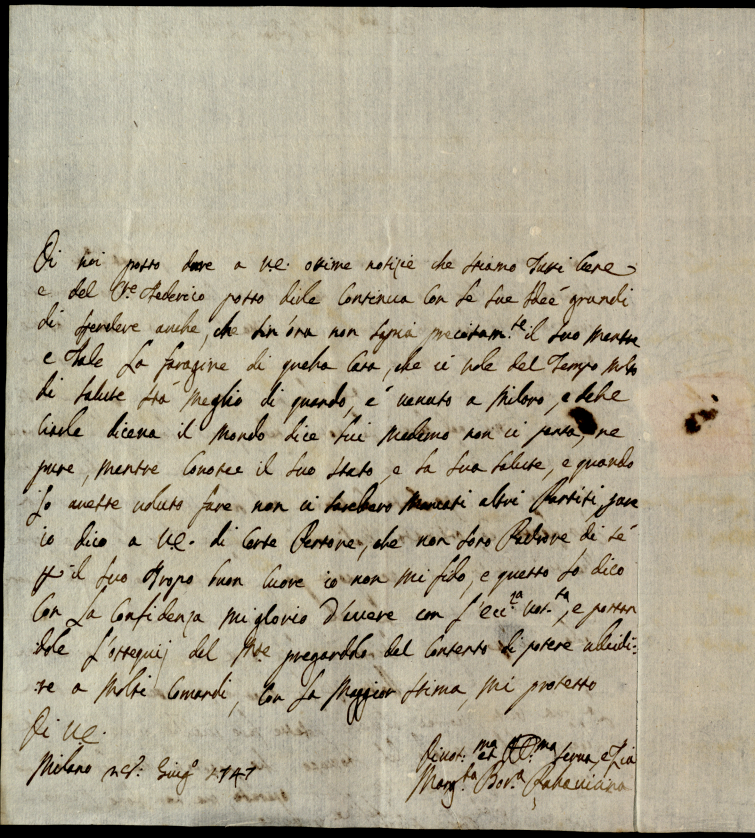 Di noi posso dare a VE. ottime notizie che stiamo tutti bene
e del C.te Federico posso dirle Continua Con le sue Idee grandi
di spendere anche, che sin'ora non sapia precisam.te il suo mentre
e tale La faragine di questa Casa, che ci vole del Tempo molto
di salute stà meglio di quando, è venuto a Milano, e debe
dicena il Mondo dice lui medemo non ci pensa, ne
pure, mentre Conosce il suo stato, e la sua salute, e quando
Lo avesse voluto fare non ci sarebero mancati altri Partiti,
io dico a VE. di Certe Persone, che non sono Padrone di sé
il suo tropo buon Cuore io non mi fido, e questo Lo dico
Con La Confidenza mi glorio d'avere con L'ecc.za vost.ra, e portan
dole L'ossequij del pregandolo del Contento di potere ubedi:
re a Molti Comandi, Con La Maggior stima, Mi protesto
Di VE.
Milano Giug.o 1747
Divot.ma et serva, e Zia
Marg.ta Bor.a